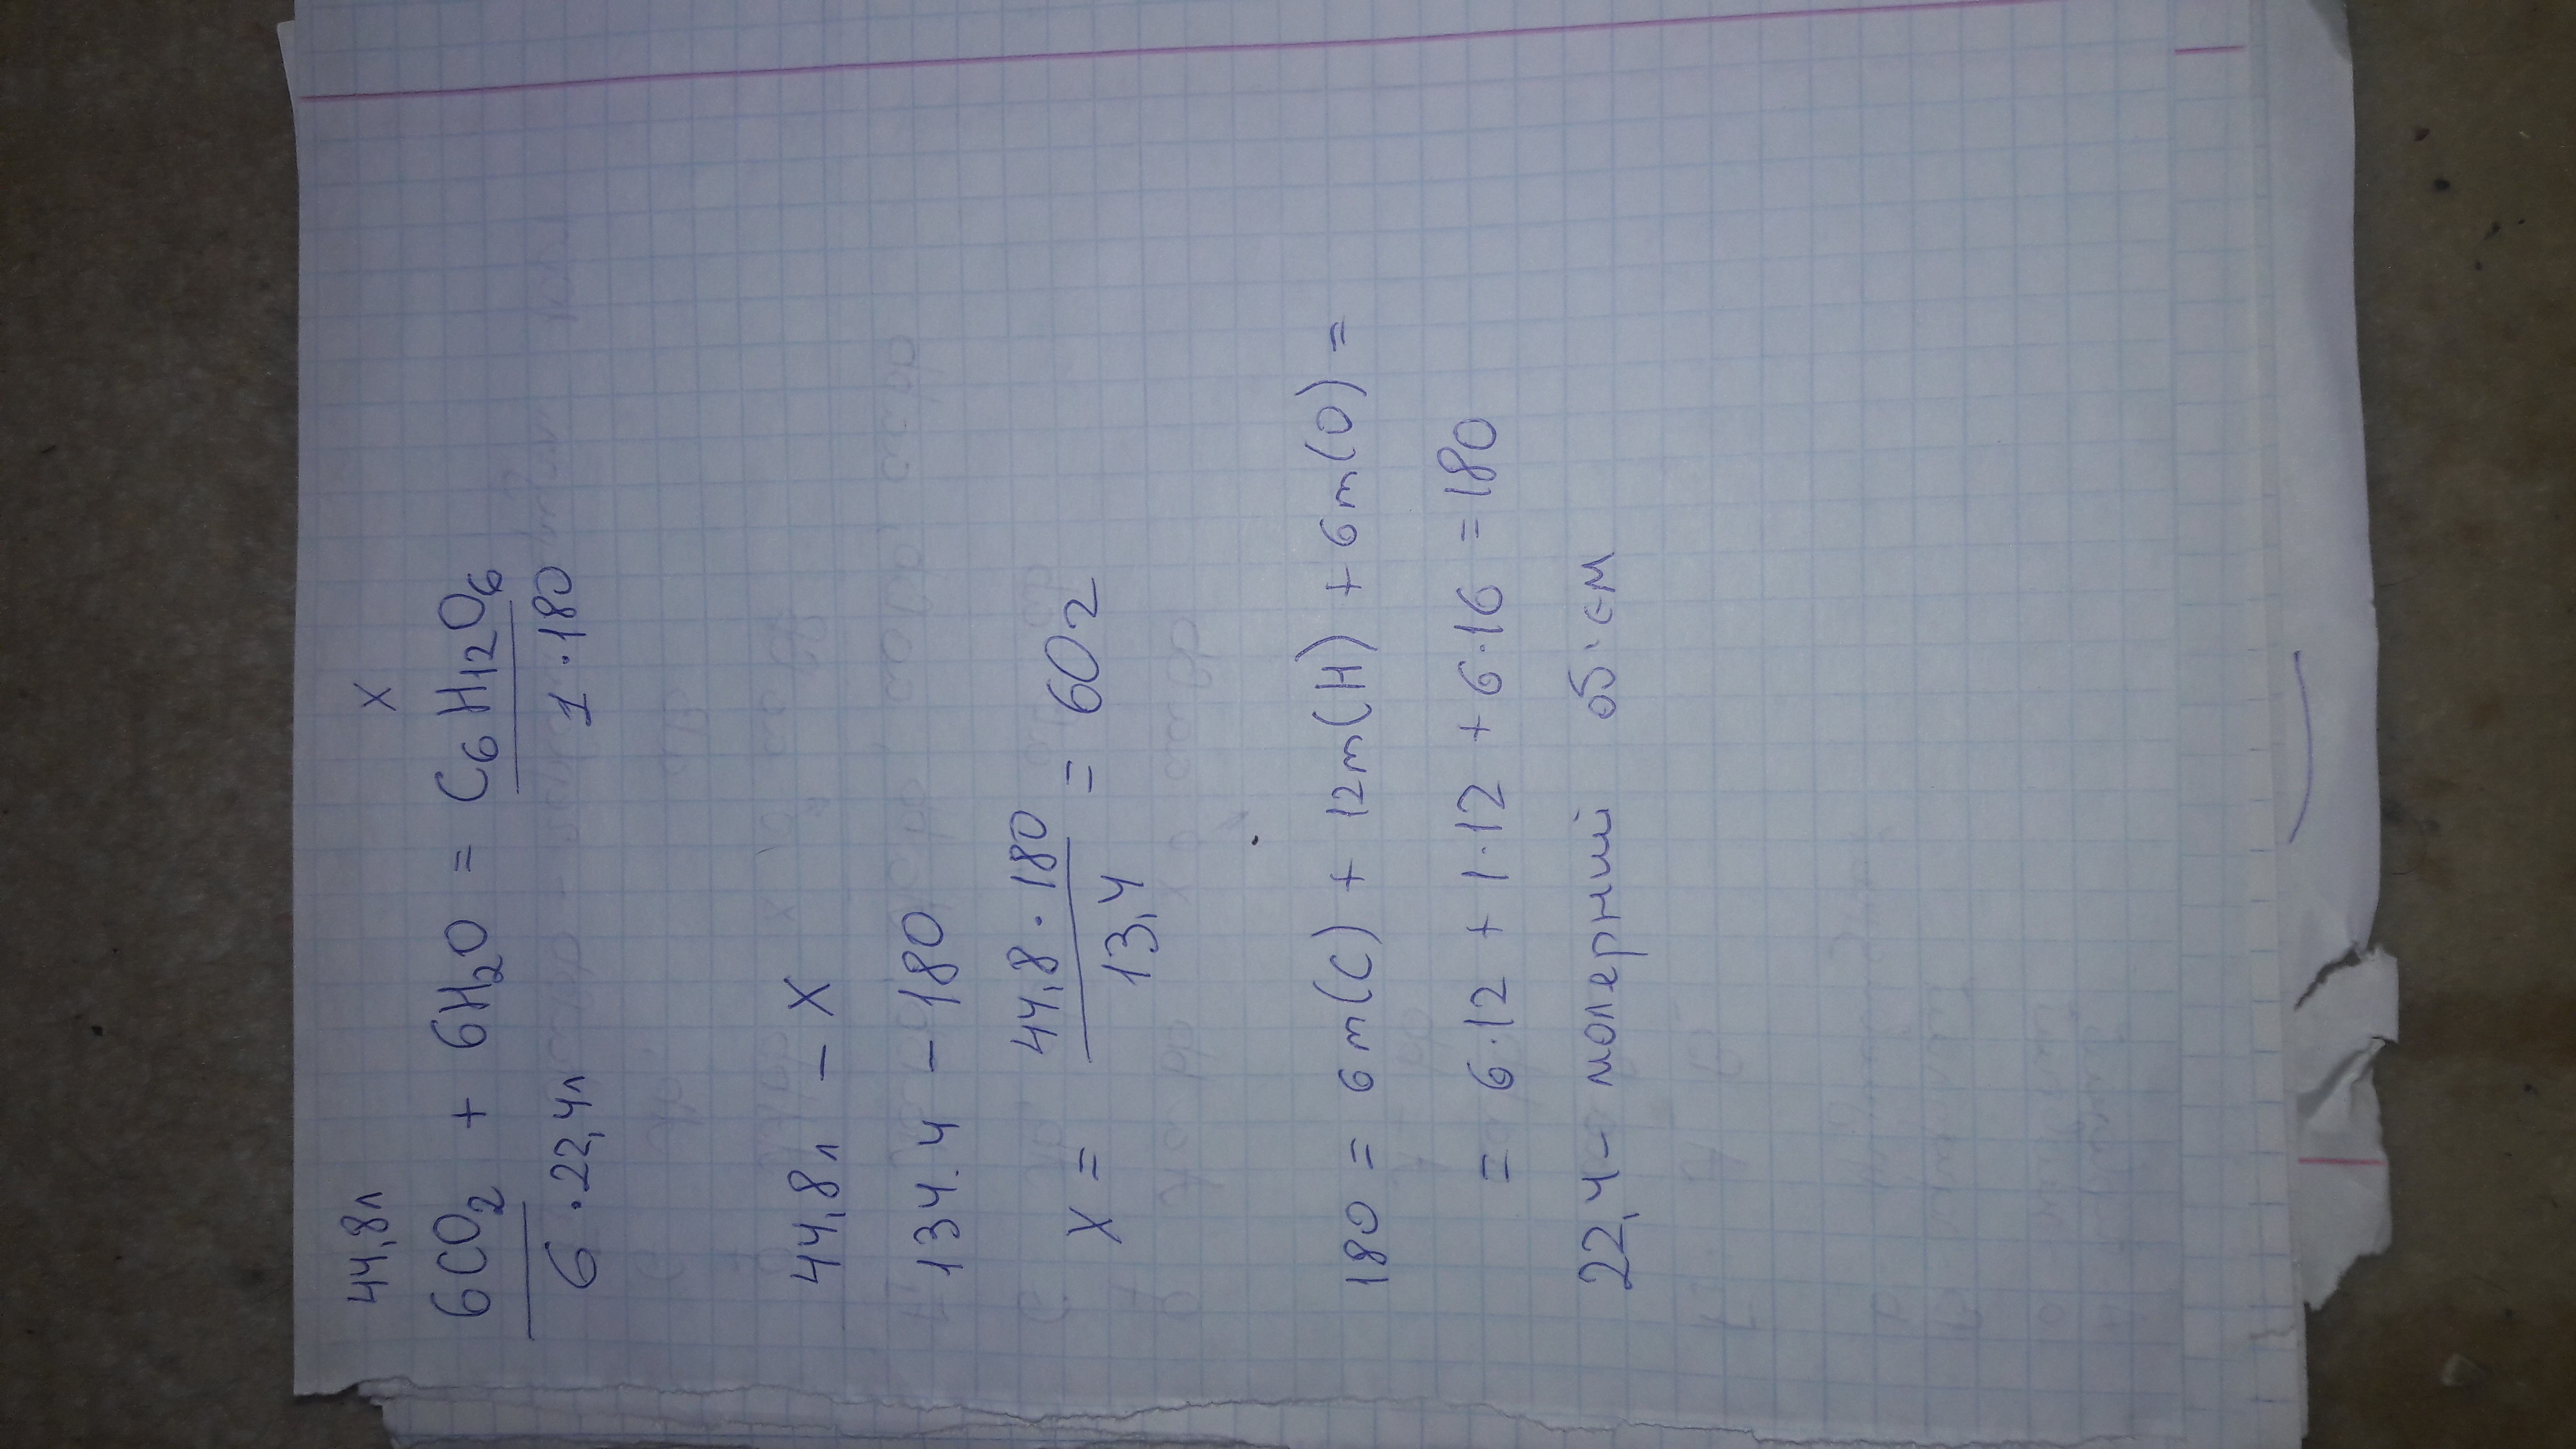 44,8л X
6CO2 + 6H2O = C6H12O6
6 · 22,4л 1 · 180
44,8л – X
134.4 – 180
X = 44,8 · 180 / 13,4 = 60 г
180 = 6m(C) + 12m(H) + 6m(O) =
= 6·12 + 1·12 + 6·16 = 180
22,4 – молерний об'єм